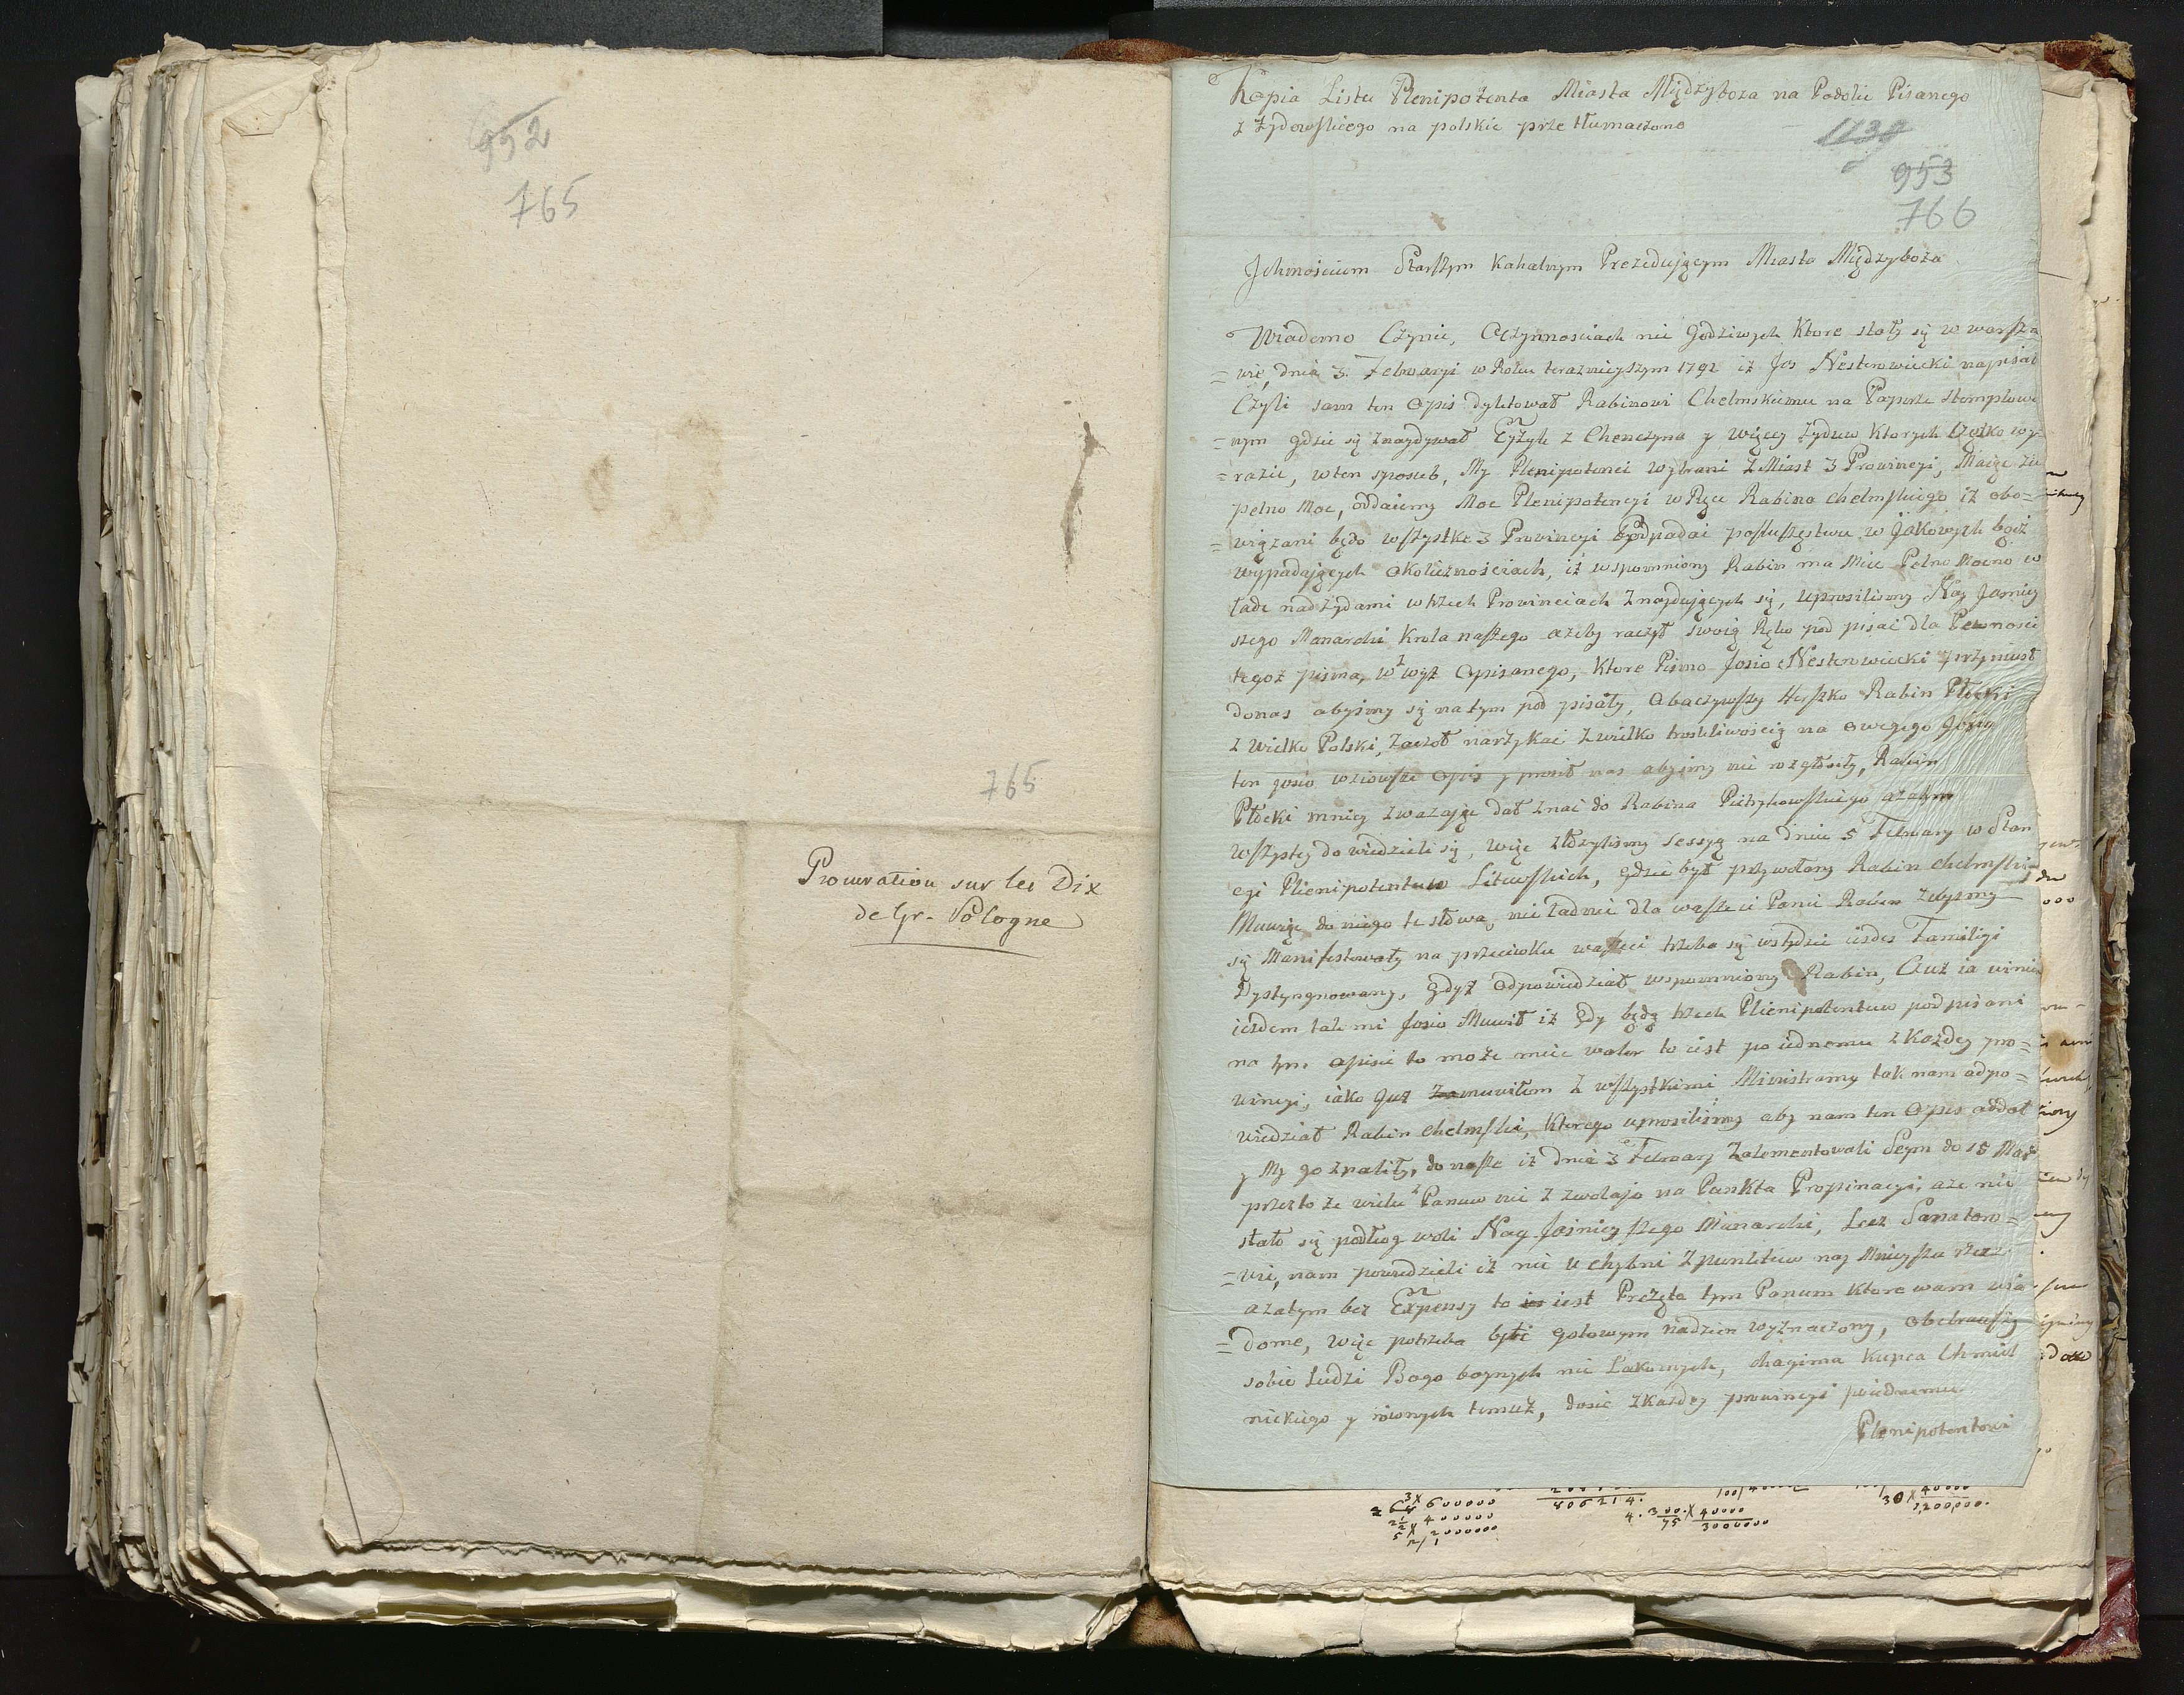 952
765
765
Procuration sur les Dix
de Gr. Pologne
Kopia Listu Plenipotenta Miasta Międzyboza na Podolu Pisanego
z Żydowskiego na polskie prze tłumaczone
1130
953
766
Jchmościum Starszym Kahalnym Prezidującym Miasta Międzyboża
Wiadomo Czynie, Oczynnosciach nie godziwych Ktore stoły się w warsza
=wie, dnia 3. Februaryi w Roku teraznieyszym 1792 iż Jos Nesterowiecki napisał
Czyli sam ten Opis dyktował Rabinowi Chelmskiemu na Papierze stemplowa
=nym gdzie się znaydywał Eyżyk z Chenczyna y więcy Żyduw Ktorych Cięszko wy-
=razić, w ten sposub, My Plenipotenci wybrani z Miast 3 Prowincyi, Maiąc zu
pelno Moc, oddaiemy Moc Plenipotencyi w Ręce Rabina chelmskiego iż obo=
=wiązani będo wszystke 3 Prowincyi podpadać posłuszęstwu w Jakowych bądź
wypadających okolicznościach, iż wspomniony Rabin ma Mieć Pełno Mocno w
ładz nad Żydami w trzech Prowinciach znaydujących się, uprosilismy Nay Jasniey
szego Monarchi Krola naszego ażeby raczył swoią Ręko pod pisać dla Pewnosci
tegoż pisma, w wyż Opisanego, Ktore Pismo Josio Nesterowiecki przyniusł
donas abysmy się natym pod pisały, Obaczywszy Herszko Rabin Płocki
z Wielko Polski, zaczoł narzykać z wielko troskliwoscią na owegego Josia
ten Josio wziowsze opis y prosił nas abysmy nie rozgłosely, Rabin
Płocki mniey zwazając dał znać do Rabina Pietrykowskiego azatym
wszystcy do wiedzieli się, więc złożylismy sessyę na dniu 5 February w Stan
cyi Plenipotentuw Litewskich, gdzie był przywołany Rabin chelmski
Muwiąc do niego te słowa, nie ładnie dla waszeci Panie Rabin żebysmy
się Manifestowały na przeciwku waszeci trzeba się wstydzić iesdes Familiyi
Dystyngnowany, Gdyż odpowiedział wspomniony Rabin, Cuż ia winien
iesdem tak mi Josio Muwił iż gdy będą trzech Plenipotentuw podpisani
na tym opisie to może mieć walor to iest po iednemu z Każdey pro=
wincyi, iako Juz zamuwiłem z wszystkimi Ministramy tak nam odpo=
wiedział Rabin chelmski, Ktorego uprosilismy aby nam ten Opis oddał
y My go zpality, donosze iż dnia 3 Februarj Zalementowali Seym do 15 Mar
przezto że wielu z Panuw nie zzwolajo na Punkta Propinacyi, aże nie
stało się podług woli Nay Jasnieyszego Monarchi, Lecz Senatoro=
=wie, nam powiedzieli iż nie u chybni z punktuw nay Mnieysza rzecz
azatym bez Expensy to iest Preżęta tym Panum Ktore wam wia
=dome, więc potrzeba być gotowym nadzien wyznaczony, obebrawszy
sobie Ludzi Bogo boynych nie Łakomych, chagima Kupca Chmiel
nickiego y rownych temuż, dosić z Każdey prowincyi poiednemu
Plenipotentowi
600000
400000
2000000
806214.
4. 300. X 40000
75 3000000
30 X 40000
1,200,000.